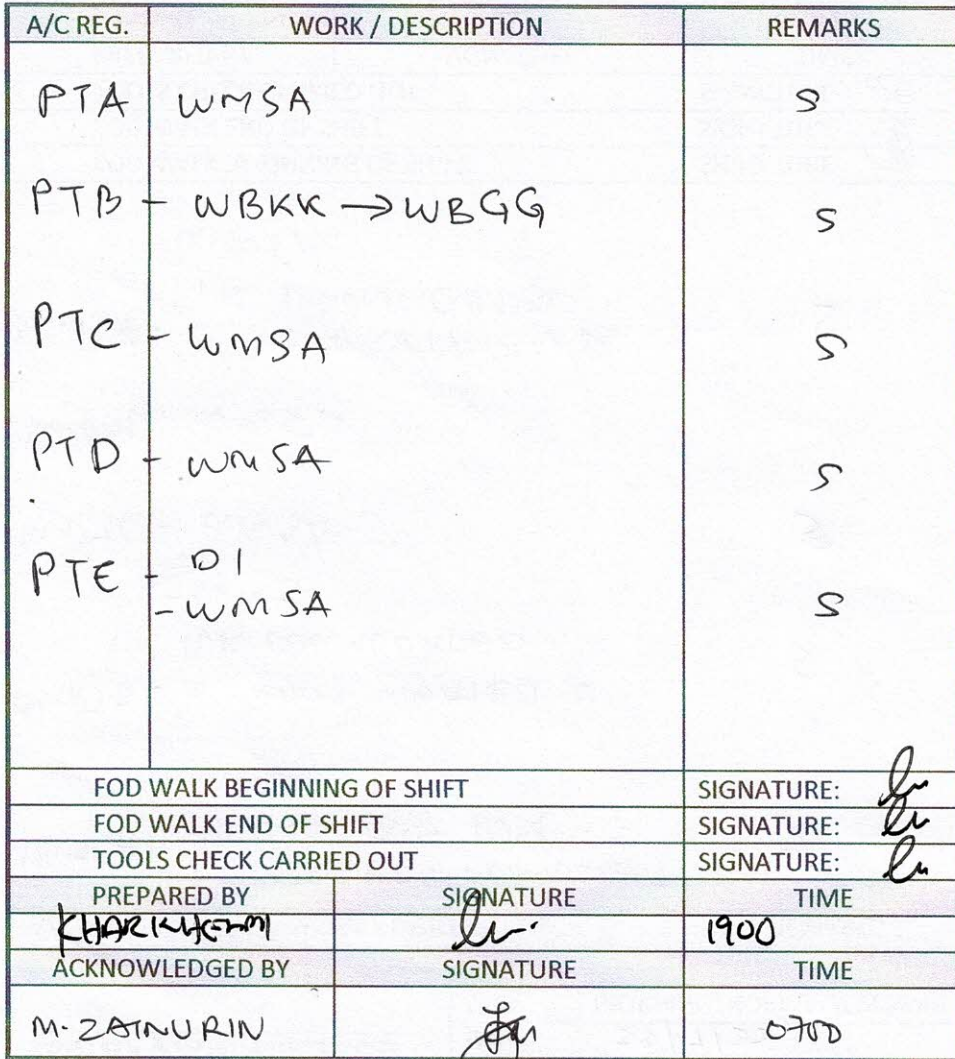 A/C REG. WORK / DESCRIPTION REMARKS
PTA WMSA S
PTB - WBKK → WBGG S
PTC - WMSA S
PTD - WMSA S
PTE - DI
- WMSA S
FOD WALK BEGINNING OF SHIFT SIGNATURE:
FOD WALK END OF SHIFT SIGNATURE:
TOOLS CHECK CARRIED OUT SIGNATURE:
PREPARED BY SIGNATURE TIME
1900
ACKNOWLEDGED BY SIGNATURE TIME
M. ZAINURIN 0700